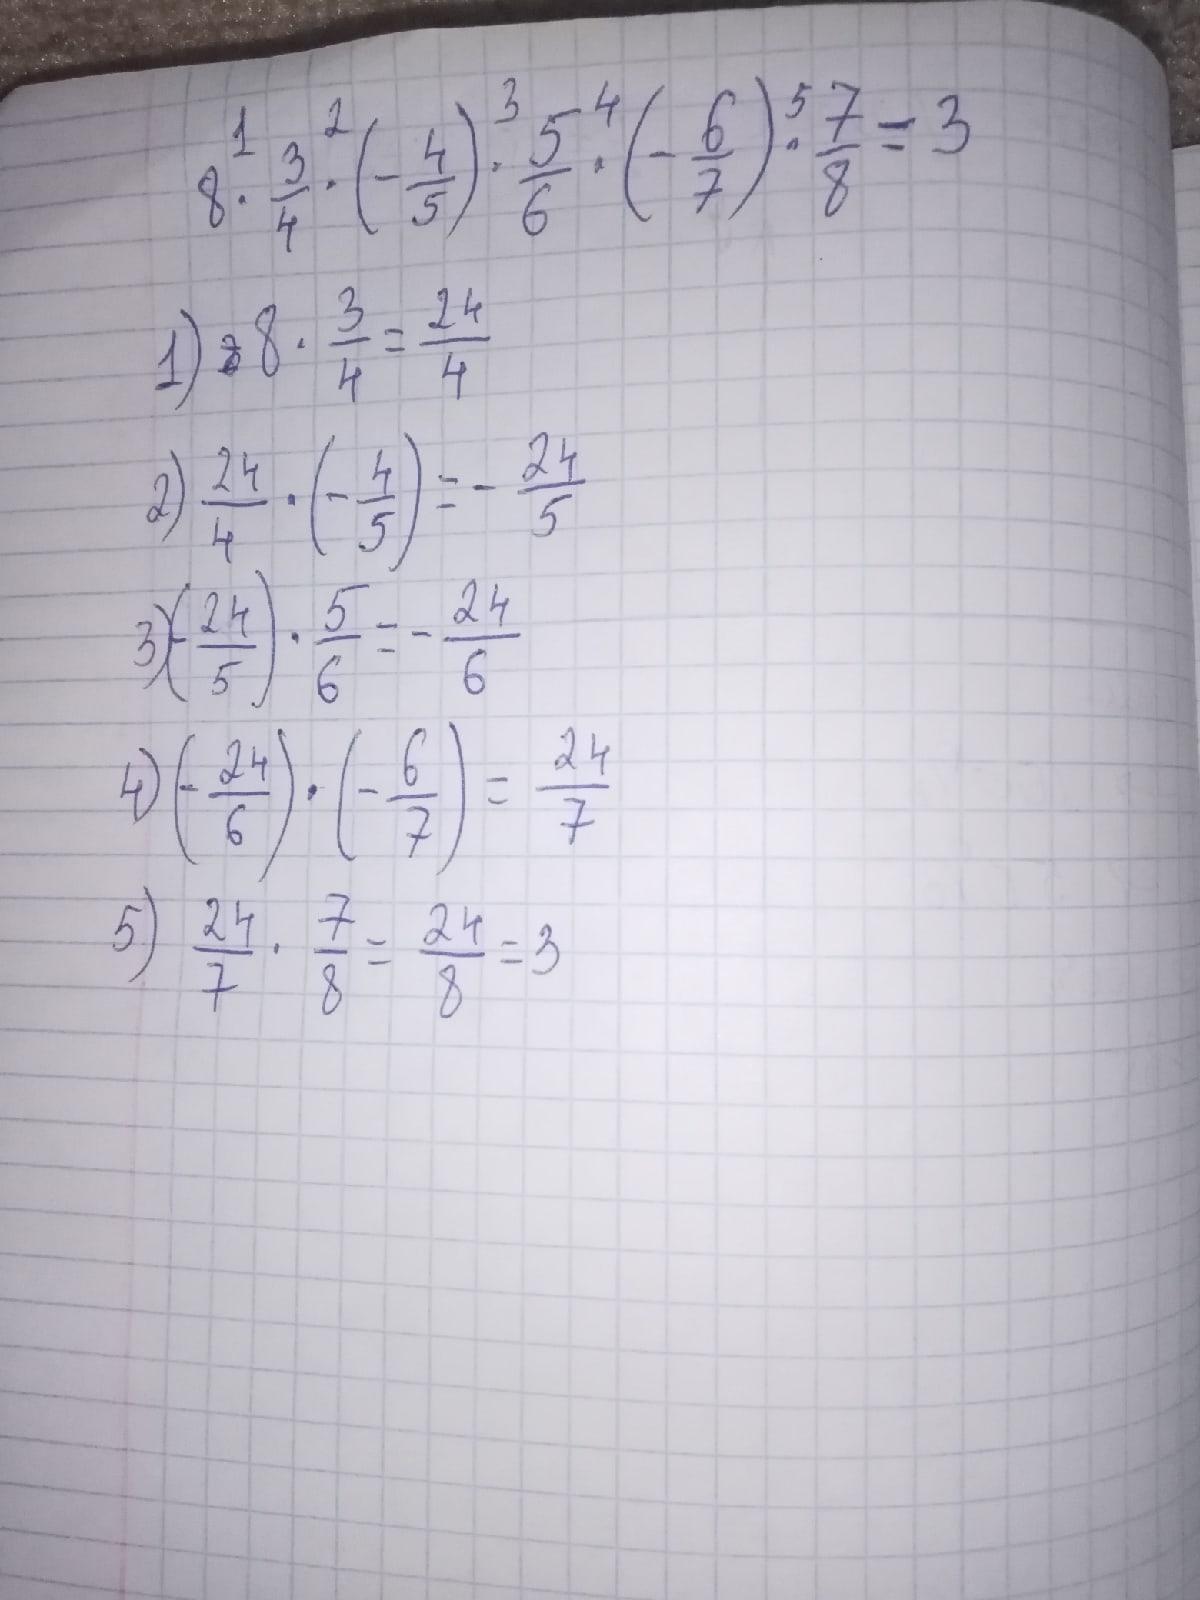 8 · 3/4 · (-4/5) · 5/6 · (-6/7) · 7/8 = 3
1) 8 · 3/4 = 24/4
2) 24/4 · (-4/5) = - 24/5
3) (-24/5) · 5/6 = - 24/6
4) (-24/6) · (-6/7) = 24/7
5) 24/7 · 7/8 = 24/8 = 3